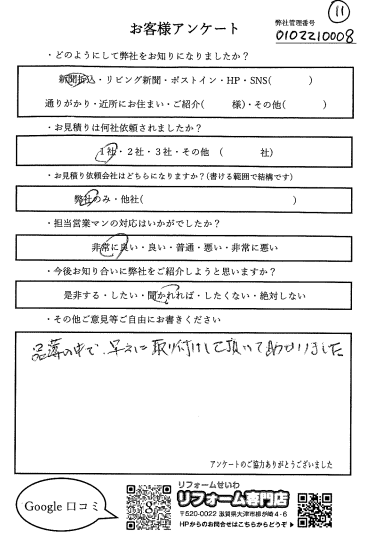 ⑪
お客様アンケート
弊社管理番号
0102210008
・どのようにして弊社をお知りになりましたか？
新聞折込・リビング新聞・ポストイン・HP・SNS(　　　)
通りがかり・近所にお住まい・ご紹介(　　　様)・その他(　　　)
・お見積りは何社依頼されましたか？
1社・2社・3社・その他　(　　　社)
・お見積り依頼会社はどちらになりますか？(書ける範囲で結構です)
弊社のみ・他社(　　　)
・担当営業マンの対応はいかがでしたか？
非常に良い・良い・普通・悪い・非常に悪い
・今後お知り合いに弊社をご紹介しようと思いますか？
是非する・したい・聞かれれば・したくない・絶対しない
・その他ご意見等ご自由にお書きください
品薄の中で、早々に取り付けして頂いて助かりました
アンケートのご協力ありがとうございました
Google 口コミ
リフォームせいわ
リフォーム専門店
〒520-0022 滋賀県大津市柳が崎4-6
HPからのお問合せはこちらからどうぞ▶